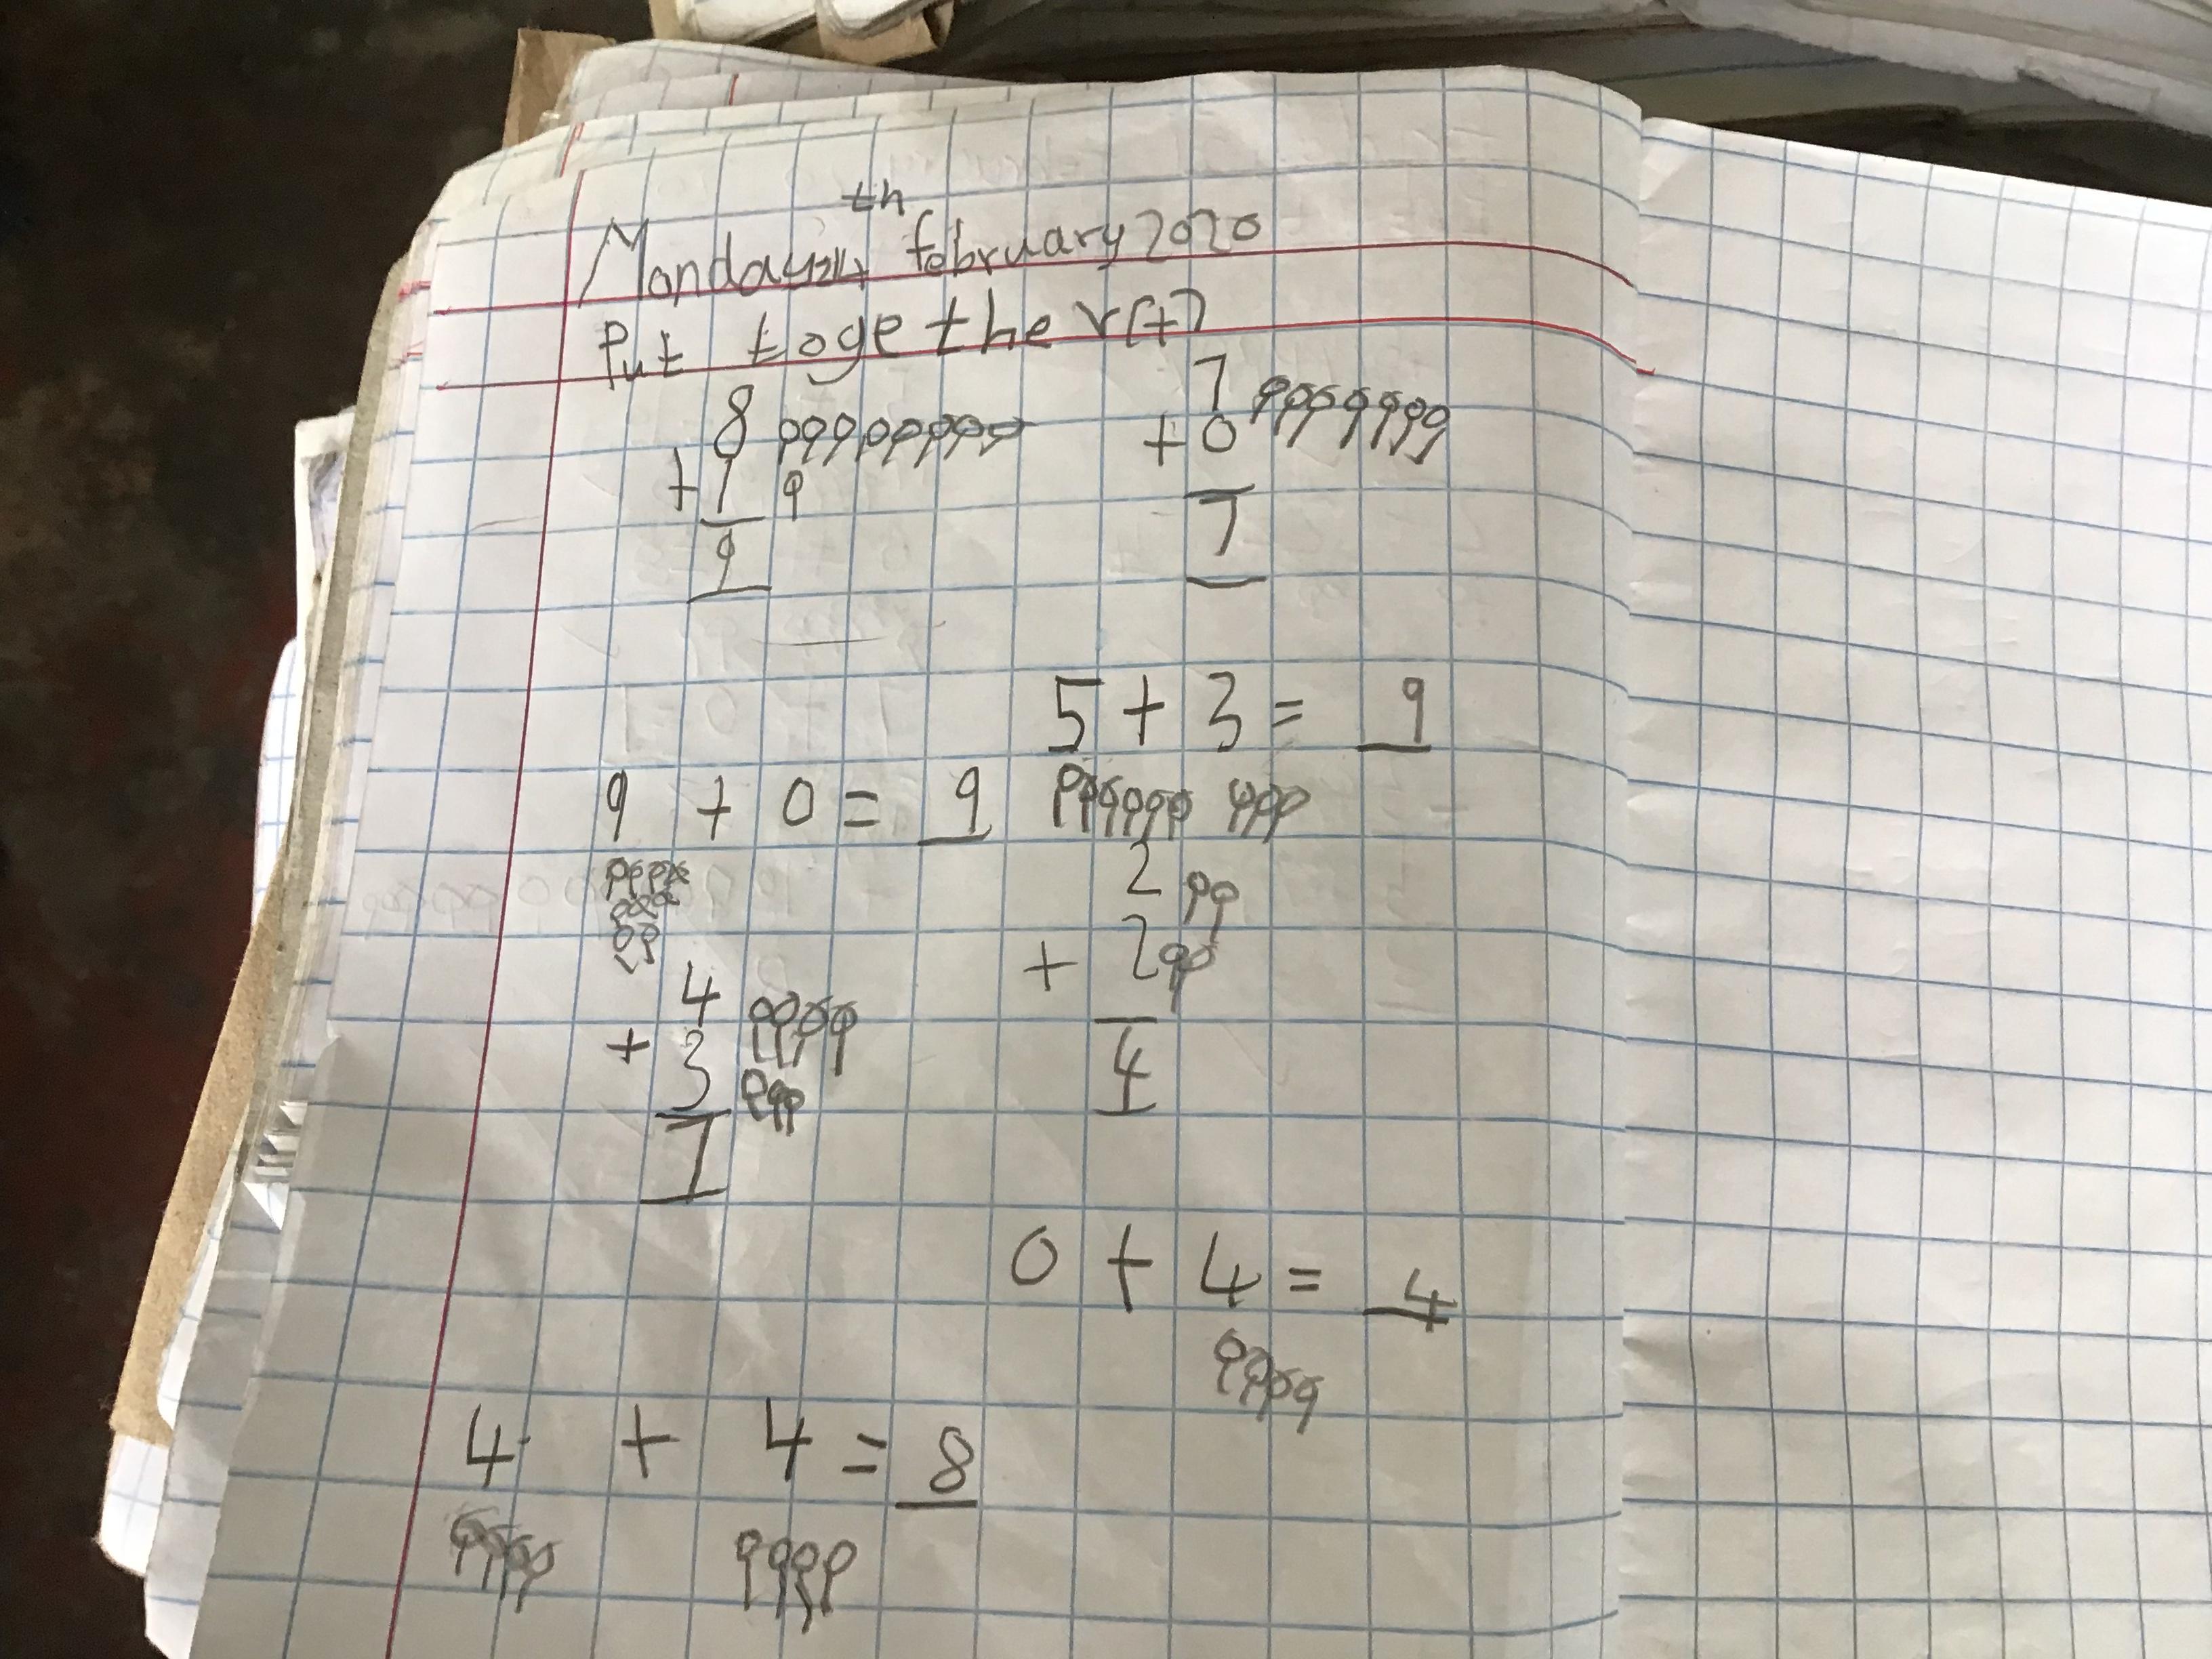 th
Monday 24 february 2020
Put together (+)
8
+ 1
9
7
+ 0
7
5 + 3 = 9
9 + 0 = 9
2
+ 2
4
4
+ 3
7
0 + 4 = 4
4 + 4 = 8